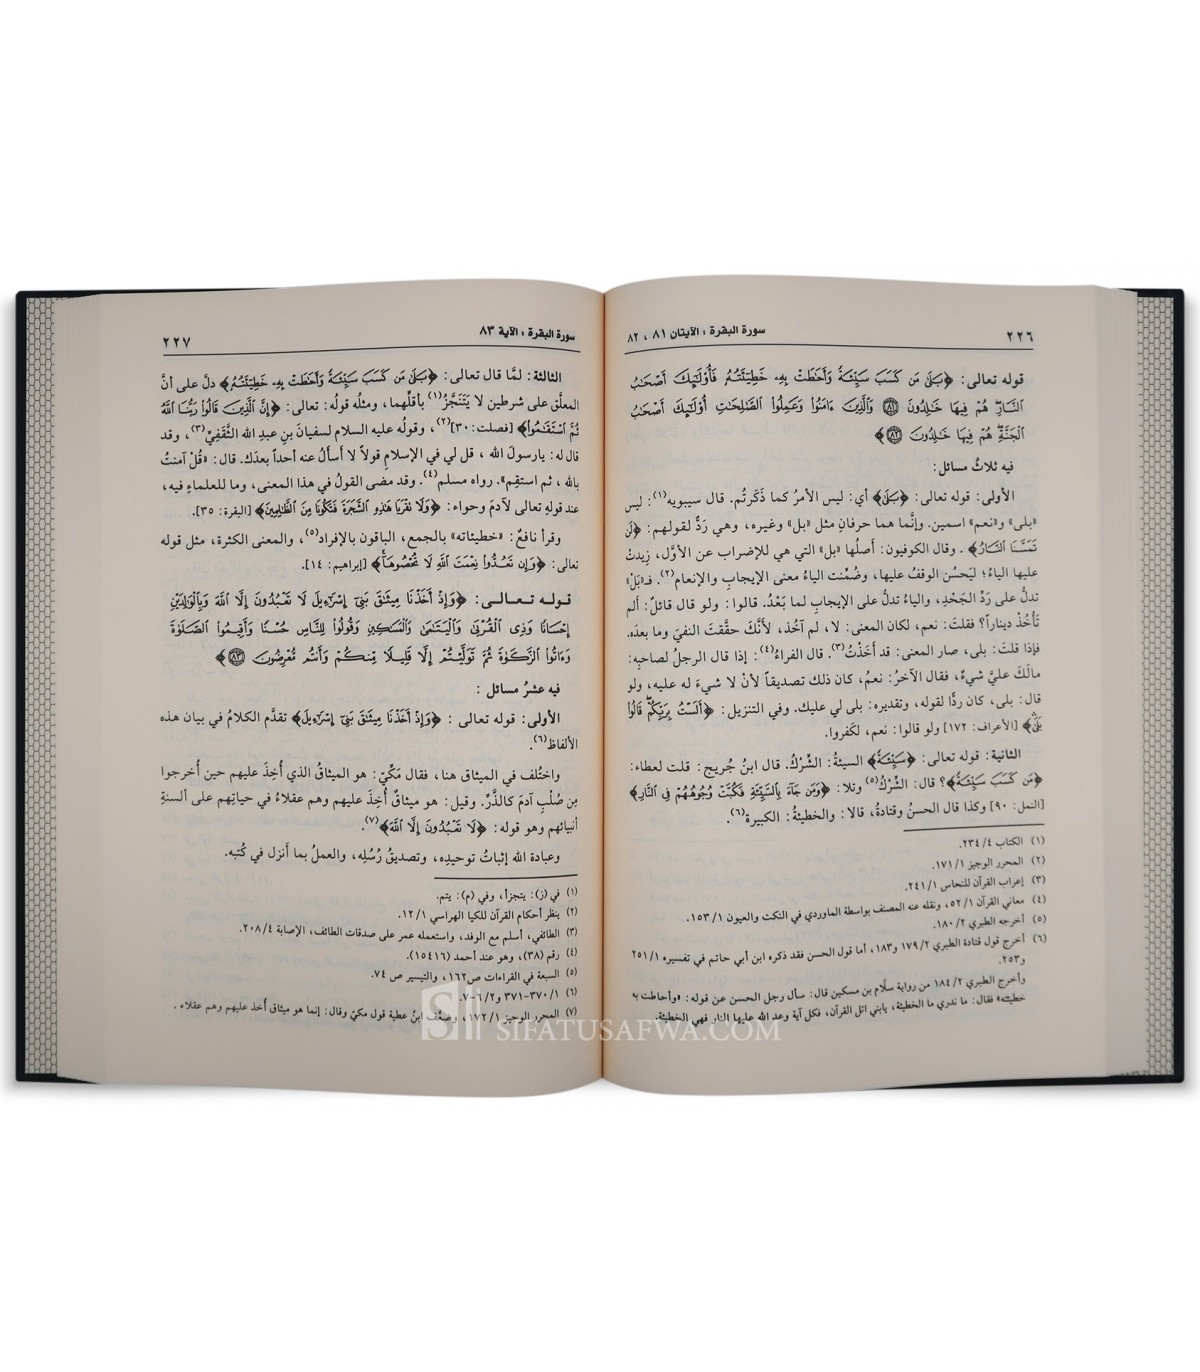 ٢٢٦
سورة البقرة : الآيتان ٨١ ، ٨٢
قوله تعالى: ﴿بَلَىٰ مَن كَسَبَ سَيِّئَةً وَأَحَٰطَتْ بِهِۦ خَطِيٓـَٔتُهُۥ فَأُو۟لَٰٓئِكَ أَصْحَٰبُ
ٱلنَّارِ هُمْ فِيهَا خَٰلِدُونَ ٨١ وَٱلَّذِينَ ءَامَنُوا۟ وَعَمِلُوا۟ ٱلصَّٰلِحَٰتِ أُو۟لَٰٓئِكَ أَصْحَٰبُ
ٱلْجَنَّةِ هُمْ فِيهَا خَٰلِدُونَ ٨٢﴾
فيه ثلاثُ مسائل:
الأولى: قوله تعالى: ﴿بَلَىٰ﴾ أي: ليس الأمرُ كما ذَكَرتُم. قال سيبويه(١): ليس
«بلى» و«نعم» اسمين. وإنَّما هما حرفانِ مثل «بل» وغيره، وهي رَدٌّ لقولهم: ﴿لَن
تَمَسَّنَا ٱلنَّارُ﴾ . وقال الكوفيون: أصلُها «بل» التي هي للإضراب عن الأوَّل، زِيدتْ
عليها الياءُ؛ ليَحسُن الوقفُ عليها، وضُمِّنت الياءُ معنى الإيجابِ والإنعام(٢). فـ«بَلْ»
تدلُّ على رَدِّ الجَحْدِ، والياءُ تدلُّ على الإيجابِ لما بَعْدُ. قالوا: ولو قال قائلٌ: ألم
تَأخُذْ ديناراً؟ فقلتَ: نعم، لكان المعنى: لا، لم آخُذ، لأنَّكَ حقَّقتَ النفيَ وما بعدَه.
فإذا قلتَ: بلى، صار المعنى: قد أَخَذْتُ(٣). قال الفراءُ(٤): إذا قال الرجلُ لصاحبِه:
مالَكَ عليَّ شيءٌ، فقال الآخرُ: نعمْ، كان ذلك تصديقاً لأنْ لا شيءَ له عليه، ولو
قال: بلى، كان ردًّا لقوله، وتقديره: بلى لي عليك. وفي التنزيل: ﴿أَلَسْتُ بِرَبِّكُمْ قَالُوا۟
بَلَىٰ﴾ [الأعراف: ١٧٢] ولو قالوا: نعم، لكَفروا.
الثانية: قوله تعالى: ﴿سَيِّئَةً﴾ السيئةُ: الشِّرْكُ. قال ابنُ جُريج: قلت لعطاء:
﴿مَن كَسَبَ سَيِّئَةً﴾؟ قال: الشِّرْكُ(٥) وتلا: ﴿وَمَن جَآءَ بِٱلسَّيِّئَةِ فَكُبَّتْ وُجُوهُهُمْ فِى ٱلنَّارِ﴾
[النمل: ٩٠] وكذا قال الحسنُ وقتادةُ، قالا: والخطيئةُ: الكبيرة(٦).
(١) الكتاب ٢٣٤/٤.
(٢) المحرر الوجيز ١٧١/١.
(٣) إعراب القرآن للنحاس ٢٤١/١.
(٤) معاني القرآن ٥٢/١، ونقله عنه المصنف بواسطة الماوردي في النكت والعيون ١٥٣/١.
(٥) أخرجه الطبري ١٨٠/٢.
(٦) أخرج قول قتادة الطبري ١٧٩/٢ و١٨٣، أما قول الحسن فقد ذكره ابن أبي حاتم في تفسيره ٢٥١/١
و٢٥٣.
وأخرج الطبري ١٨٤/٢ من رواية سلّام بن مسكين قال: سأل رجل الحسن عن قوله: «وأحاطت به
خطيئته» فقال: ما ندري ما الخطيئة، يابني اتل القرآن، فكل آية وعد الله عليها النار فهي الخطيئة.
سورة البقرة : الآية ٨٣
٢٢٧
الثالثة: لمَّا قال تعالى: ﴿بَلَىٰ مَن كَسَبَ سَيِّئَةً وَأَحَٰطَتْ بِهِۦ خَطِيٓـَٔتُهُۥ﴾ دلَّ على أنَّ
المعلَّق على شرطين لا يَتَنَجَّزُ(١) بأقلِّهما، ومثلُه قولُه: تعالى: ﴿إِنَّ ٱلَّذِينَ قَالُوا۟ رَبُّنَا ٱللَّهُ
ثُمَّ ٱسْتَقَٰمُوا۟﴾ [فصلت: ٣٠](٢)، وقولُه عليه السلام لسفيانَ بنِ عبدِ الله الثَّقَفِيِّ(٣)، وقد
قال له: يارسولَ الله ، قل لي في الإسلامِ قولاً لا أسألُ عنه أحداً بعدَك. قال: «قُلْ آمنتُ
بالله ، ثم استقِم». رواه مسلم(٤). وقد مضى القولُ في هذا المعنى، وما للعلماءِ فيه،
عند قولهِ تعالى لآدمَ وحواء: ﴿وَلَا تَقْرَبَا هَٰذِهِ ٱلشَّجَرَةَ فَتَكُونَا مِنَ ٱلظَّٰلِمِينَ﴾ [البقرة: ٣٥].
وقرأ نافعٌ: «خطيئاته» بالجمع، الباقون بالإفراد(٥)، والمعنى الكثرة، مثل قوله
تعالى: ﴿وَإِن تَعُدُّوا۟ نِعْمَتَ ٱللَّهِ لَا تُحْصُوهَآ﴾ [إبراهيم: ١٤].
قوله تعالى: ﴿وَإِذْ أَخَذْنَا مِيثَٰقَ بَنِىٓ إِسْرَٰٓءِيلَ لَا تَعْبُدُونَ إِلَّا ٱللَّهَ وَبِٱلْوَٰلِدَيْنِ
إِحْسَانًا وَذِى ٱلْقُرْبَىٰ وَٱلْيَتَٰمَىٰ وَٱلْمَسَٰكِينِ وَقُولُوا۟ لِلنَّاسِ حُسْنًا وَأَقِيمُوا۟ ٱلصَّلَوٰةَ
وَءَاتُوا۟ ٱلزَّكَوٰةَ ثُمَّ تَوَلَّيْتُمْ إِلَّا قَلِيلًا مِّنكُمْ وَأَنتُم مُّعْرِضُونَ ٨٣﴾
فيه عشرُ مسائل :
الأولى: قوله تعالى : ﴿وَإِذْ أَخَذْنَا مِيثَٰقَ بَنِىٓ إِسْرَٰٓءِيلَ﴾ تقدَّم الكلامُ في بيان هذه
الألفاظ(٦).
واختُلف في الميثاق هنا، فقال مَكِّيّ: هو الميثاقُ الذي أُخِذَ عليهم حين أُخرجوا
مِن صُلْبِ آدمَ كالذَّرِّ. وقيل: هو ميثاقٌ أُخِذَ عليهم وهم عقلاءُ في حياتِهم على ألسنةِ
أنبيائهم وهو قوله: ﴿لَا تَعْبُدُونَ إِلَّا ٱللَّهَ﴾(٧).
وعبادة الله إثباتُ توحيدِه، وتصديقُ رُسُلِه، والعملُ بما أَنزل في كُتبه.
(١) في (ز): يتجزأ، وفي (م): يتم.
(٢) ينظر أحكام القرآن للكيا الهراسي ١٢/١.
(٣) الطائفي، أسلم مع الوفد، واستعمله عمر على صدقات الطائف، الإصابة ٢٠٨/٤.
(٤) رقم (٣٨)، وهو عند أحمد (١٥٤١٦).
(٥) السبعة في القراءات ص١٦٢، والتيسير ص ٧٤.
(٦) ٣٧٠/١-٣٧١ و٦/٢-٧.
(٧) المحرر الوجيز ١٧٢/١، وضعَّف ابنُ عطية قول مكيّ وقال: إنما هو ميثاق أخذ عليهم وهم عقلاء .
SIFATUSAFWA.COM